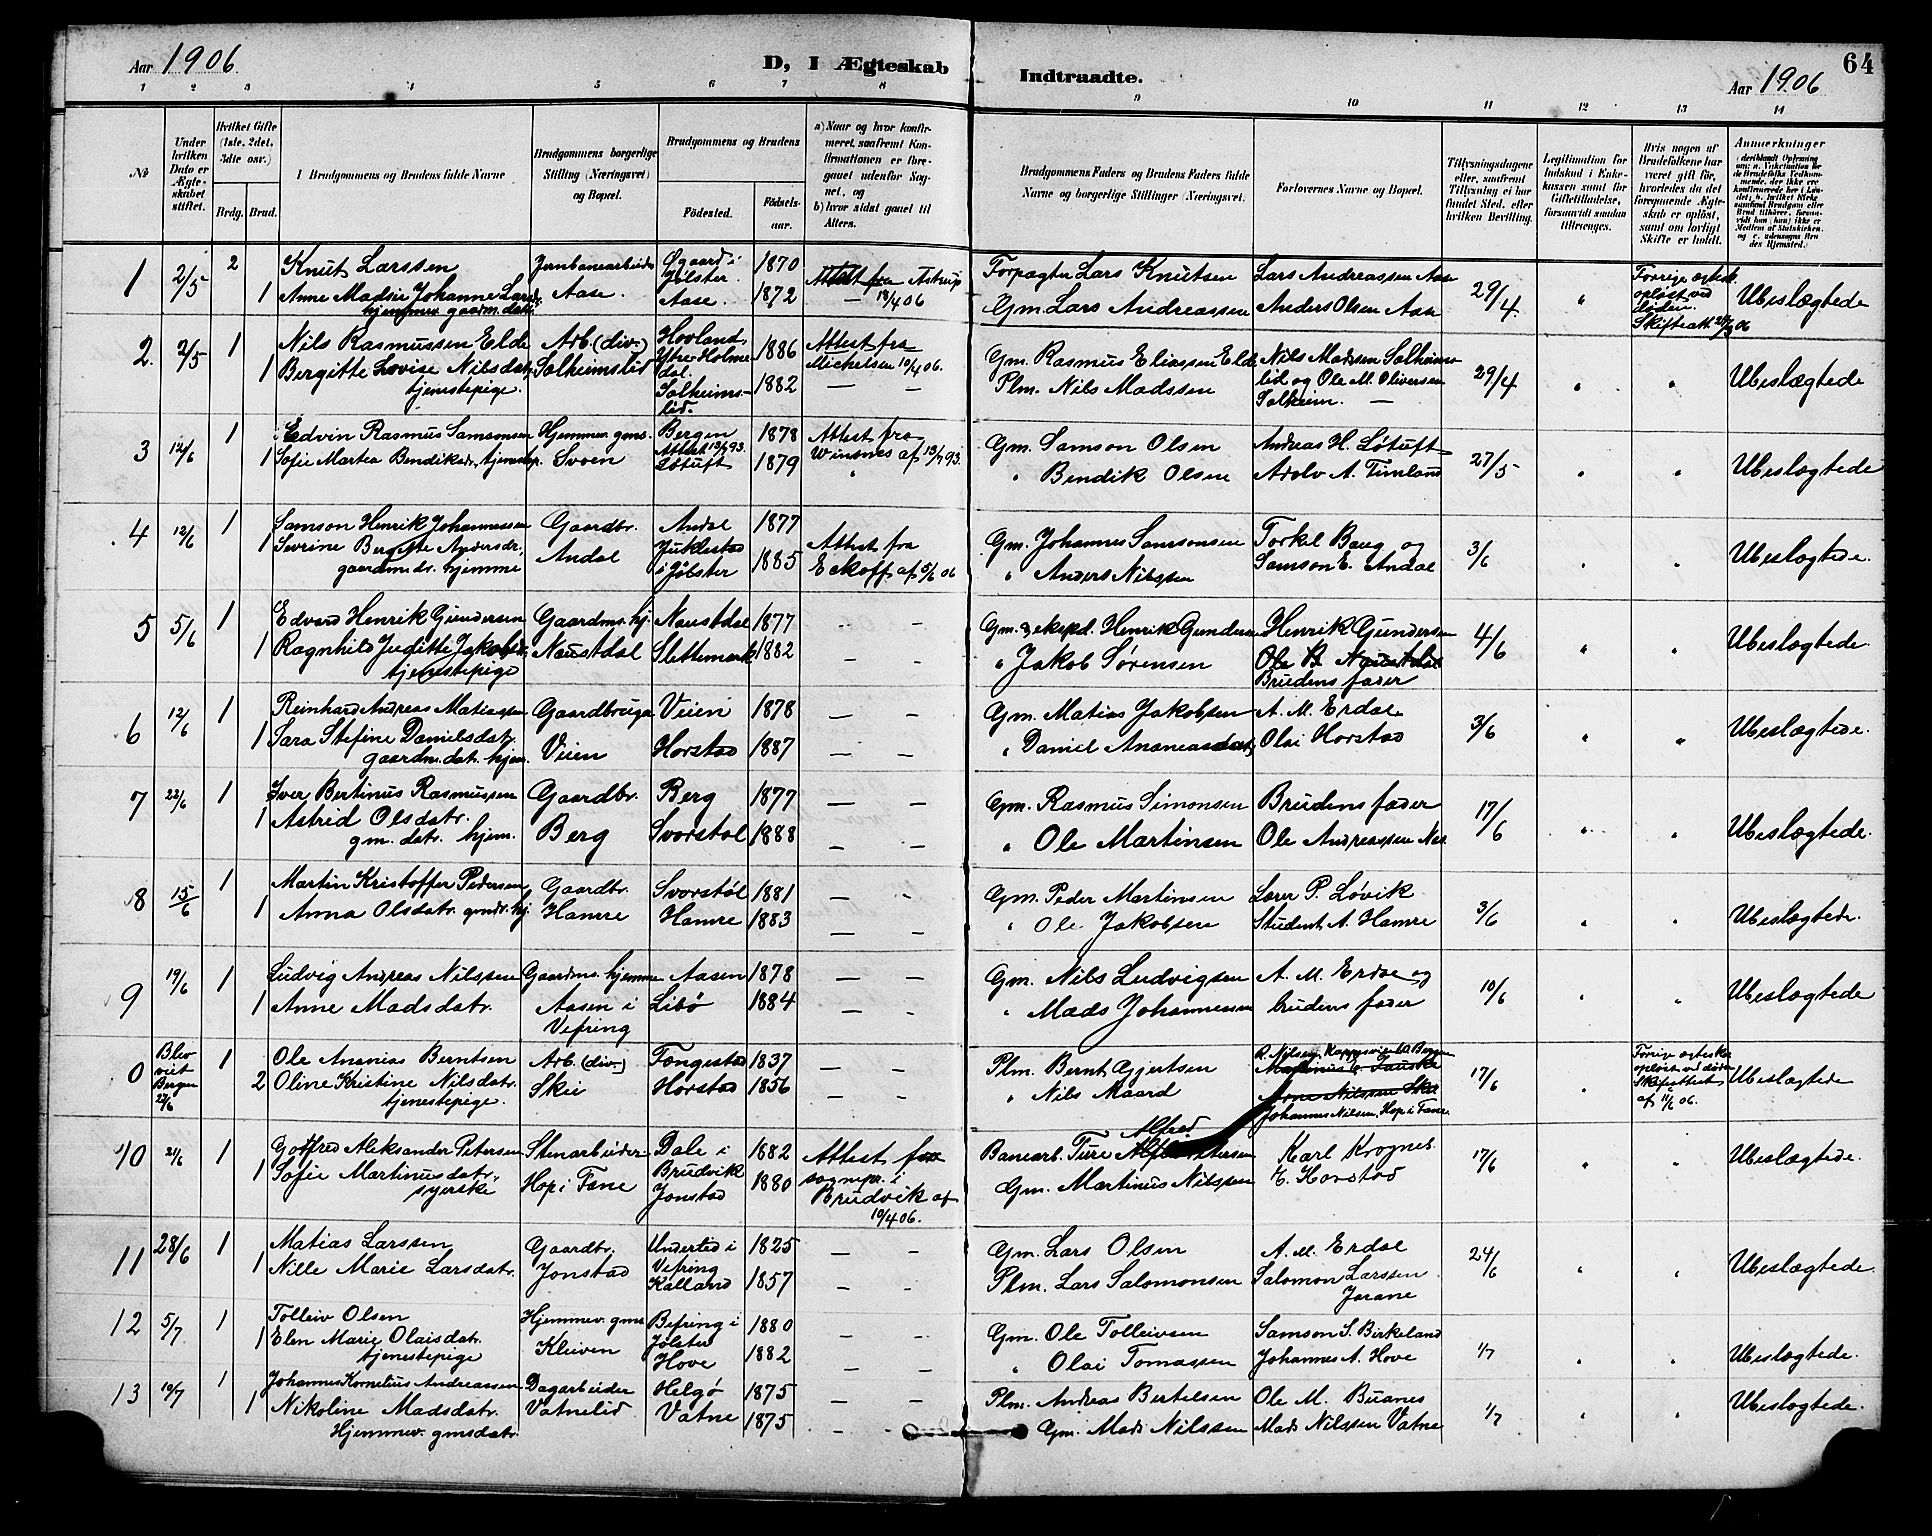 Aar 1906. D, I Ægteskab Indtraadte. Aar 1906 64
1 2 3 4 5 6 7 8 9 10 11 12 13 14
No
Under hvilken Dato er Ægteskabet stiftet.
Hvilket Gifte (1ste, 2det, 3die osv.)
Brdg. Brud.
Brudgommens og Brudens fulde Navne
Brudgommens borgerlige Stilling (Næringsvei) og Bopæl.
Brudgommens og Brudens
Födested. Födselsaar.
a) Naar og hvor konfirmeret, saafremt Konfirmationen er foregaaet udenfor Sognet, og
b) hvor sidst gaaet til Alters.
Brudgommens Faders og Brudens Faders fulde Navne og borgerlige Stillinger (Næringsvei.
Forlovernes Navne og Bopæl.
Tillysningsdagene eller, saafremt Tillysning ei har fundet Sted, efter hvilken Bevilling.
Legitimation for Indskud i Enkekassen samt for Giftetilladelse, forsaavidt saadan tiltrænges.
Hvis nogen af Brudefolkene har været gift før, hvorledes da det foregaaende Ægteskab er oplöst, samt om lovligt Skifte er holdt.
Anmærkninger
1 2/5 2 Knut Larssen Jernbanearbeider Øgaard i Jølster 1870 Attest fra Astrup Forpagter Lars Knutsen Lars Andreassen Aase 29/4. " Forrige ægtesk. opløst ved døden. Skifteatt. Ubeslægtede
1 Anne Madsie Johanne Larsdr. Aase. Aase. 1872 — 18/4 06 Gm. Lars Andreassen Anders Olsen Aase
hjemmev. gaardm. datter
2. 2/5 1 Nils Rasmussen Elde Arb. (div.) Hovland Ytre Holmedal. 1886 Attest fra Gm. Rasmus Eliassen Elde Nils Madssen Solheims- 29/4 " " Ubeslægtede
1 Bergitte Lovise Nilsdatr. Solheimslid Solheimslid. 1882 Michelsen 10/4 06. Plm. Nils Madssen lid og Ole M. Oliversen
tjenestepige. — — Solheim. —
3 12/6 1 Edvin Rasmus Samsonsen Hjemmev. gms. Bergen 1878 Attest fra Gm. Samson Olsen Andreas H. Løtuft 27/5 " " Ubeslægtede
1 Sofie Martea Bendiksdr. tjenestep. Svoen Attest 13/7 93. Løtuft 1879 Winsnes af 13/7 93. " Bendik Olsen Arolv A. Timland
4 12/6 1 Samson Henrik Johannessen Gaardbr. Andal 1877 Gm. Johannes Samsonsen Torkel Baug og 3/6 " " Ubeslægtede.
1 Sevrine Bergitte Andersdr. Andal Juklestad i Jølster 1885 Attest fra " Anders Nilssen Samson E. Andal
gaardm. dr. hjemme Eckoff af 5/6 06
5 5/6 1 Edvard Henrik Gundersen Gaardms. hj. Naustdal 1877 — — Gm. & eksped. Henrik Gundersen Henrik Gundersen 4/6 " " Ubeslægtede
1 Ragnhild Juditte Jakobsdr. Naustdal Slettemark 1882 — — " Jakob Sørensen Ole B. Naustdal
tjenestepige Brudens fader
6 12/6 1 Reinhard Andreas Matiassen Gaardbruger Veien 1878 — — Gm. Matias Jakobsen A. M. Erdal 3/6 " " Ubeslægtede.
1 Sara Stefine Danielsdatr. Veien Horstad 1887 — — " Daniel Ananiassen Olai Horstad
gaardm. datr. hjem.
7 22/6 1 Iver Bertinus Rasmussen Gaardbr. Berg 1877 — — Gm. Rasmus Simonsen Brudens fader 17/6 " " Ubeslægtede.
1 Astrid Olsdatr. Berg Svorstøl 1888 — — " Ole Martinsen Ole Andreassen Nes
gm. datr. hjem.
8 15/6 1 Martin Kristoffer Pedersen Gaardbr. Svorstøl 1881 — — Gm. Peder Martinsen Lærer P. Løvik 3/6 " Ubeslægtede.
1 Anna Olsdatr. gmdr. hj. Hamre Hamre 1883 — — " Ole Jakobsen Student A. Hamre
9 19/6 1 Ludvig Andreas Nilssen Gaardms. hjemme Aasen 1878 — — Gm. Nils Ludvigsen A. M. Erdal og 10/6 " " Ubeslægtede
1 Anne Madsdatr. Aasen i Vefring Libø 1884 — — " Mads Johannessen brudens fader
0 Blev viet Bergen 27/6 1 Ole Ananias Berntsen Arb. (div.) Fængestad 1837 — — Plm. Bernt Gjertsen R. Nilsen 17/6 " Forrige ægteskab opløst ved døden Skifteattest af 11/6 06. Ubeslægtede
2 Oline Kristine Nilsdatr. Skei Horstad 1856 — — " Nils Maard Arne Nilssen Skei
tjenestepige. Johannes Nilsen, Hop i Fane
10 21/6 1 Gotfred Aleksander Petersen Stenarbeider Dale i Brudvik 1882 Attest fra Banearb. Ture Alfred Petersen Karl Krognes 17/6 " " Ubeslægtede.
1 Sofie Martinusdatr. Hop i Fane Jonstad 1880 sognepr. i Gm. Martinus Nilssen H. Horstad
syerske Brudvik af 10/4 06.
11 28/6 1 Matias Larssen Gaardbr. Understed i Vefring 1825 — — Gm. Lars Olsen A. M. Erdal 24/6 " " Ubeslægtede.
1 Nille Marie Larsdatr. Jonstad Kalland 1857 — — Plm. Lars Salomonsen Salomon Larssen
Jorane
12 5/7 1 Tolleiv Olsen Hjemmev. gms. Befring i Jølster 1880 — — Gm. Ole Tolleivsen Samson S. Birkeland 1/7 " " Ubeslægtede.
1 Elen Marie Olaisdatr. Kleiven Hove 1882 — — " Olai Tomassen Johannes A. Hove
tjenestepige
13 10/7 1 Johannes Kornelius Andreassen Dagarbeider Helgø 1875 — — Plm. Andreas Bertelsen Ole M. Buanes 1/7 " " Ubeslægtede.
1 Nikoline Madsdatr. Vatnelid Vatne 1875 — — Gm. Mads Nilssen Mads Nilssen Vatne
Hjemmev. gmsdatr.